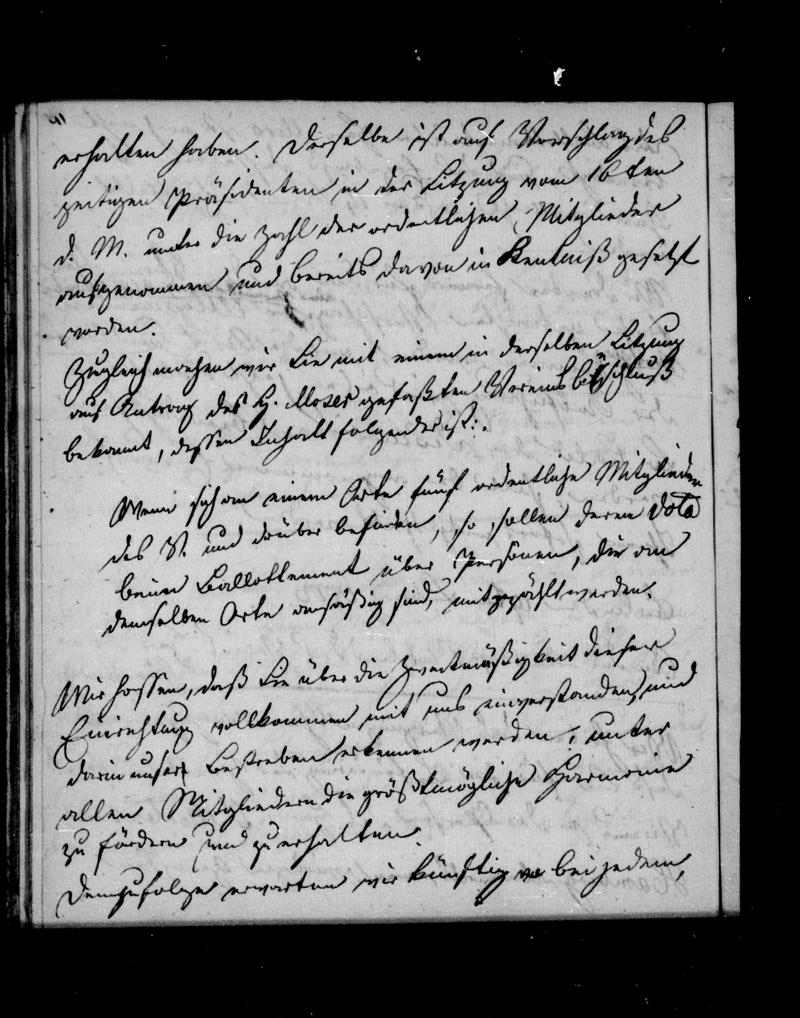 41
erhalten haben. Derselbe ist auf Vorschlag des
zeitigen Präsidenten in der Sitzung vom 16ten
d. M. unter die Zahl der ordentlichen Mitglieder
aufgenommen und bereits davon in Kentniß gesetzt
worden.
Zugleich machen wir Sie mit einem in derselben Sitzung
auf Antrag des H. Moser gefaßten Vereinsbeschluß
bekannt, dessen Inhalt folgender ist:
Wenn sich an einem Orte fünf ordentliche Mitglieder
des V. und drüber befinden, so sollen deren Vota
beim Ballottement über Personen, die an
demselben Orte ansäßig sind, mitgezählt werden.
Wir hoffen, daß Sie über die Zweckmäßigkeit dieser
Einrichtung vollkommen mit uns einverstanden, und
darin unser Bestreben erkennen werden, unter
allen Mitgliedern die größtmögliche Harmonie
zu fördern und zu erhalten.
Demzufolge erwarten wir künftig bei jedem,